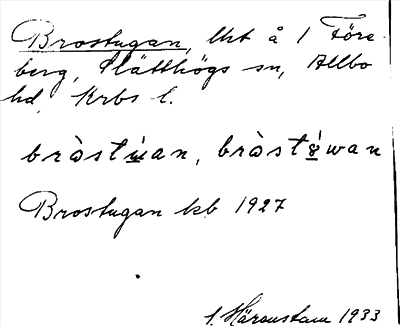 Brostugan, lht å 1 Före-
berg, Slätthögs sn, Allbo
hd, Krbs l.
bràstú̱an, bràstɤ̱́wan
Brostugan kb 1927
S. Härenstam 1933